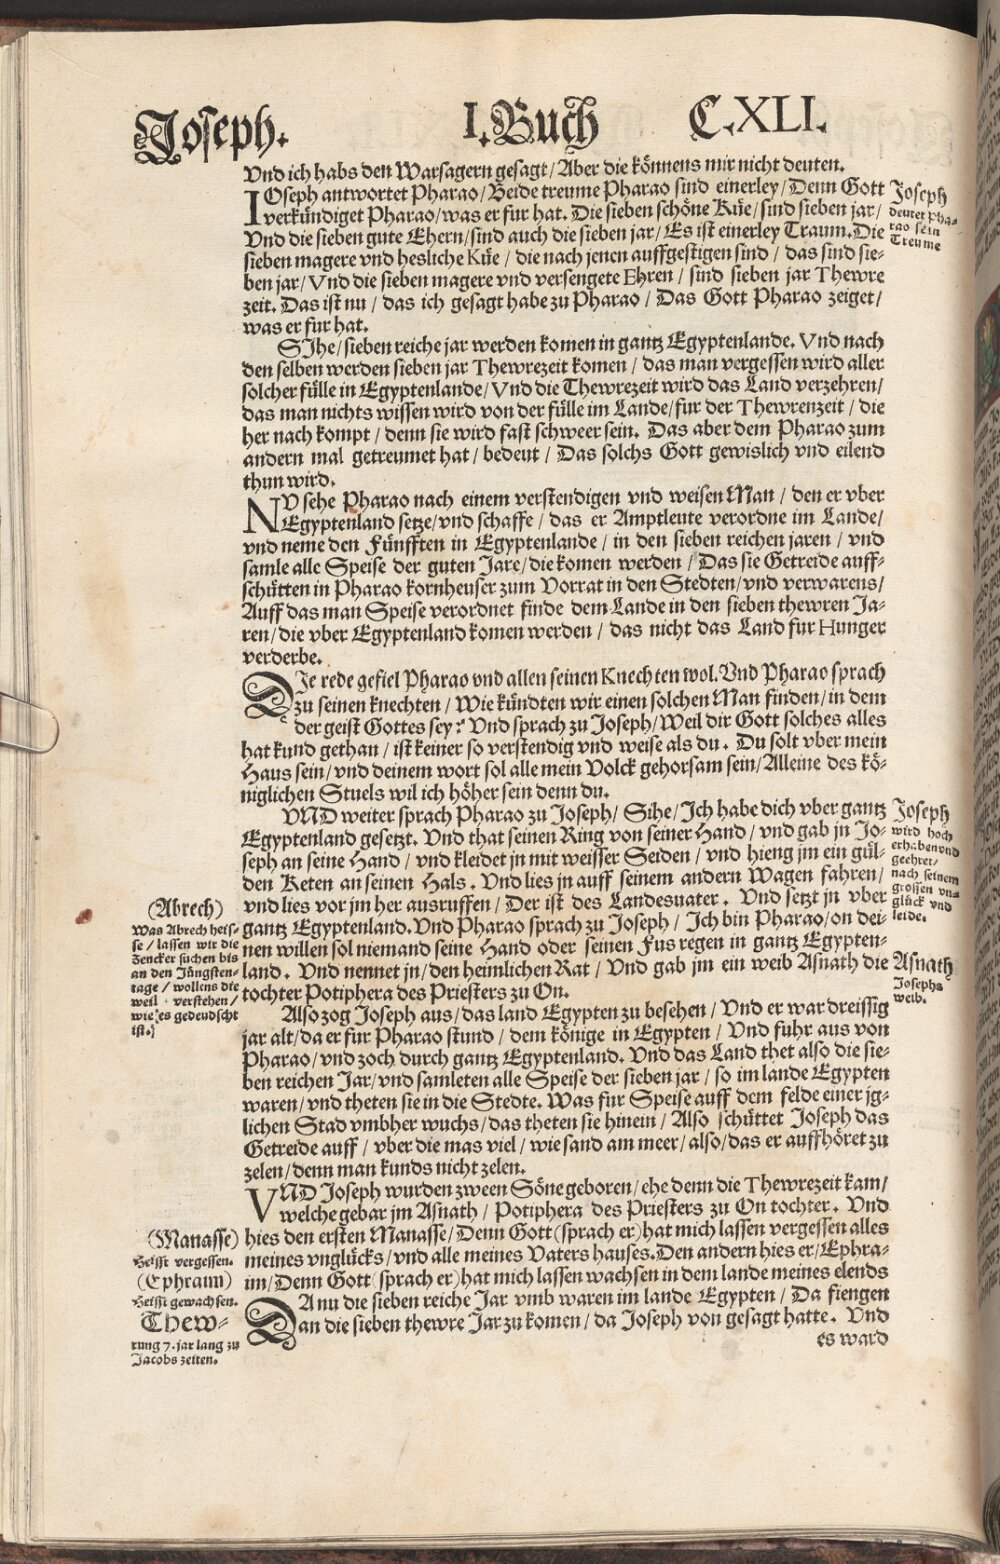 Joseph.
I. Buch
C. XLI.
Vnd ich habs den Warsagern gesagt / Aber die könnens mir nicht deuten.
IOseph antwortet Pharao / Beide treume Pharao sind einerley / Denn Gott
verkündiget Pharao / was er fur hat. Die sieben schöne Küe / sind sieben jar /
Vnd die sieben gute Ehern / sind auch die sieben jar / Es ist einerley Traum. Die
sieben magere vnd hesliche Küe / die nach jenen auffgestigen sind / das sind sie-
ben jar / Vnd die sieben magere vnd versengete Ehren / sind sieben jar Thewre
zeit. Das ist nu / das ich gesagt habe zu Pharao / Das Gott Pharao zeiget /
was er fur hat.
SIhe / sieben reiche jar werden komen in gantz Egyptenlande. Vnd nach
den selben werden sieben jar Thewrezeit komen / das man vergessen wird aller
solcher fülle in Egyptenlande / Vnd die Thewrezeit wird das Land verzehren /
das man nichts wissen wird von der fülle im Lande / fur der Thewrenzeit / die
her nach kompt / denn sie wird fast schweer sein. Das aber dem Pharao zum
andern mal getreumet hat / bedeut / Das solchs Gott gewislich vnd eilend
thun wird.
NV sehe Pharao nach einem verstendigen vnd weisen Man / den er vber
Egyptenland setze / vnd schaffe / das er Amptleute verordne im Lande /
vnd neme den Fünfften in Egyptenlande / in den sieben reichen jaren / vnd
samle alle Speise der guten Jare / die komen werden / Das sie Getreide auff-
schütten in Pharao kornheuser zum Vorrat in den Stedten / vnd verwarens /
Auff das man Speise verordnet finde dem Lande in den sieben thewren Ja-
ren / die vber Egyptenland komen werden / das nicht das Land fur Hunger
verderbe.
DIe rede gefiel Pharao vnd allen seinen Knechten wol. Vnd Pharao sprach
zu seinen knechten / Wie kündten wir einen solchen Man finden / in dem
der geist Gottes sey? Vnd sprach zu Joseph / Weil dir Gott solches alles
hat kund gethan / ist keiner so verstendig vnd weise als du. Du solt vber mein
Haus sein / vnd deinem wort sol alle mein Volck gehorsam sein / Alleine des kö-
niglichen Stuels wil ich höher sein denn du.
VND weiter sprach Pharao zu Joseph / Sihe / Ich habe dich vber gantz
Egyptenland gesetzt. Vnd that seinen Ring von seiner Hand / vnd gab jn Jo-
seph an seine Hand / vnd kleidet jn mit weisser Seiden / vnd hieng jm ein gül-
den Keten an seinen Hals. Vnd lies jn auff seinem andern Wagen fahren /
vnd lies vor jm her ausruffen / Der ist des Landesuater. Vnd setzt jn vber
gantz Egyptenland. Vnd Pharao sprach zu Joseph / Ich bin Pharao / on dei-
nen willen sol niemand seine Hand oder seinen Fus regen in gantz Egypten-
land. Vnd nennet jn / den heimlichen Rat / Vnd gab jm ein weib Asnath die
tochter Potiphera des Priesters zu On.
Also zog Joseph aus / das land Egypten zu besehen / Vnd er war dreissig
jar alt / da er fur Pharao stund / dem könige in Egypten / Vnd fuhr aus von
Pharao / vnd zoch durch gantz Egyptenland. Vnd das Land thet also die sie-
ben reichen Jar / vnd samleten alle Speise der sieben jar / so im lande Egypten
waren / vnd theten sie in die Stedte. Was fur Speise auff dem felde einer jg-
lichen Stad vmbher wuchs / das theten sie hinein / Also schüttet Joseph das
Getreide auff / vber die mas viel / wie sand am meer / also / das er auffhöret zu
zelen / denn man kunds nicht zelen.
VND Joseph wurden zween Söne geboren / ehe denn die Thewrezeit kam /
welche gebar jm Asnath / Potiphera des Priesters zu On tochter. Vnd
hies den ersten Manasse / Denn Gott (sprach er) hat mich lassen vergessen alles
meines vnglücks / vnd alle meines Vaters hauses. Den andern hies er / Ephra-
im / Denn Gott (sprach er) hat mich lassen wachsen in dem lande meines elends
DA nu die sieben reiche Jar vmb waren im lande Egypten / Da fiengen
an die sieben thewre Jar zu komen / da Joseph von gesagt hatte. Vnd
es ward
Joseph
deutet Pha-
rao sein
Treume
Joseph
wird hoch
erhaben vnd
geehret /
nach seinem
grossen vn-
glück vnd
leide.
Asnath
Josephs
weib.
(Abrech)
Was Abrech heis-
se / lassen wir die
Zencker suchen bis
an den Jüngsten-
tage / wollens die
weil verstehen /
wie es gedeudscht
ist.
(Manasse)
Heisst vergessen.
(Ephraim)
Heisst gewachsen.
Thew-
rung 7. jar lang zu
Jacobs zeiten.